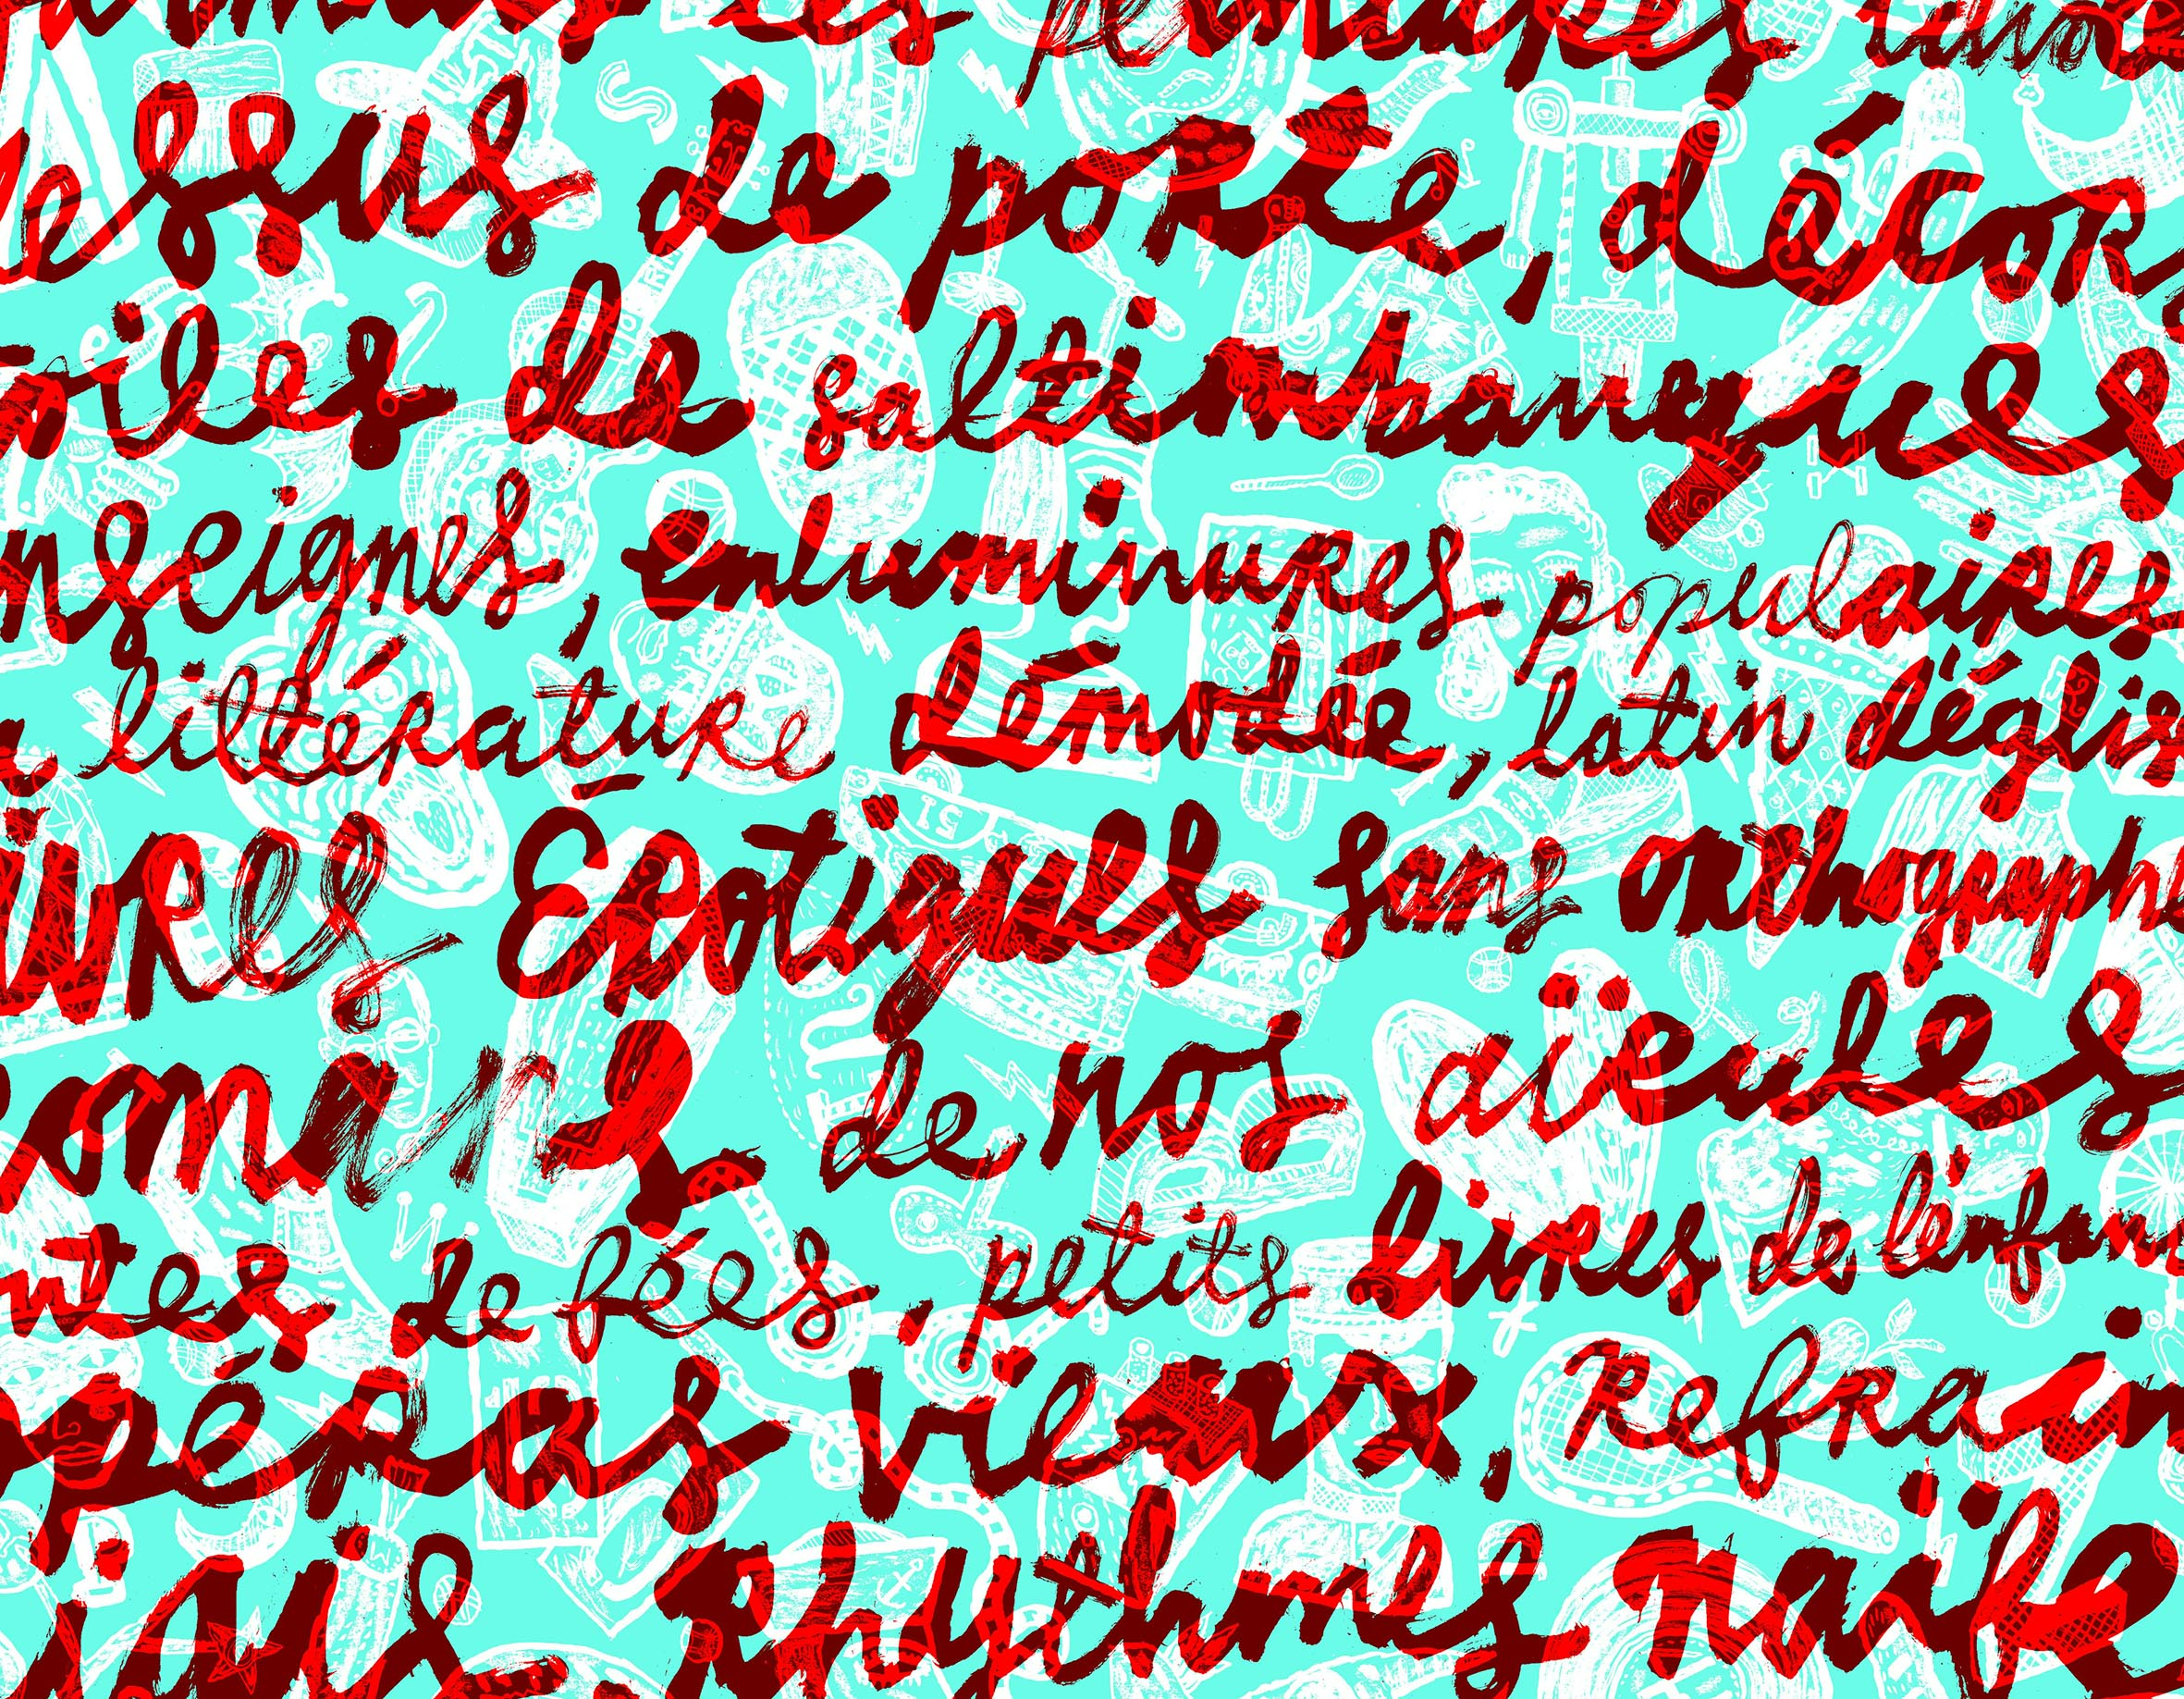 les peintures
essus de porte, décor
oiles de saltimbanques
nseignes, enluminures populaires
a littérature démodée, latin d'églis
ivres Érotiques sans orthographe
omans de nos aïeules
ntes de fées, petits livres de l'enfan
péras vieux, Refrain
iais, Rhythmes naïfs